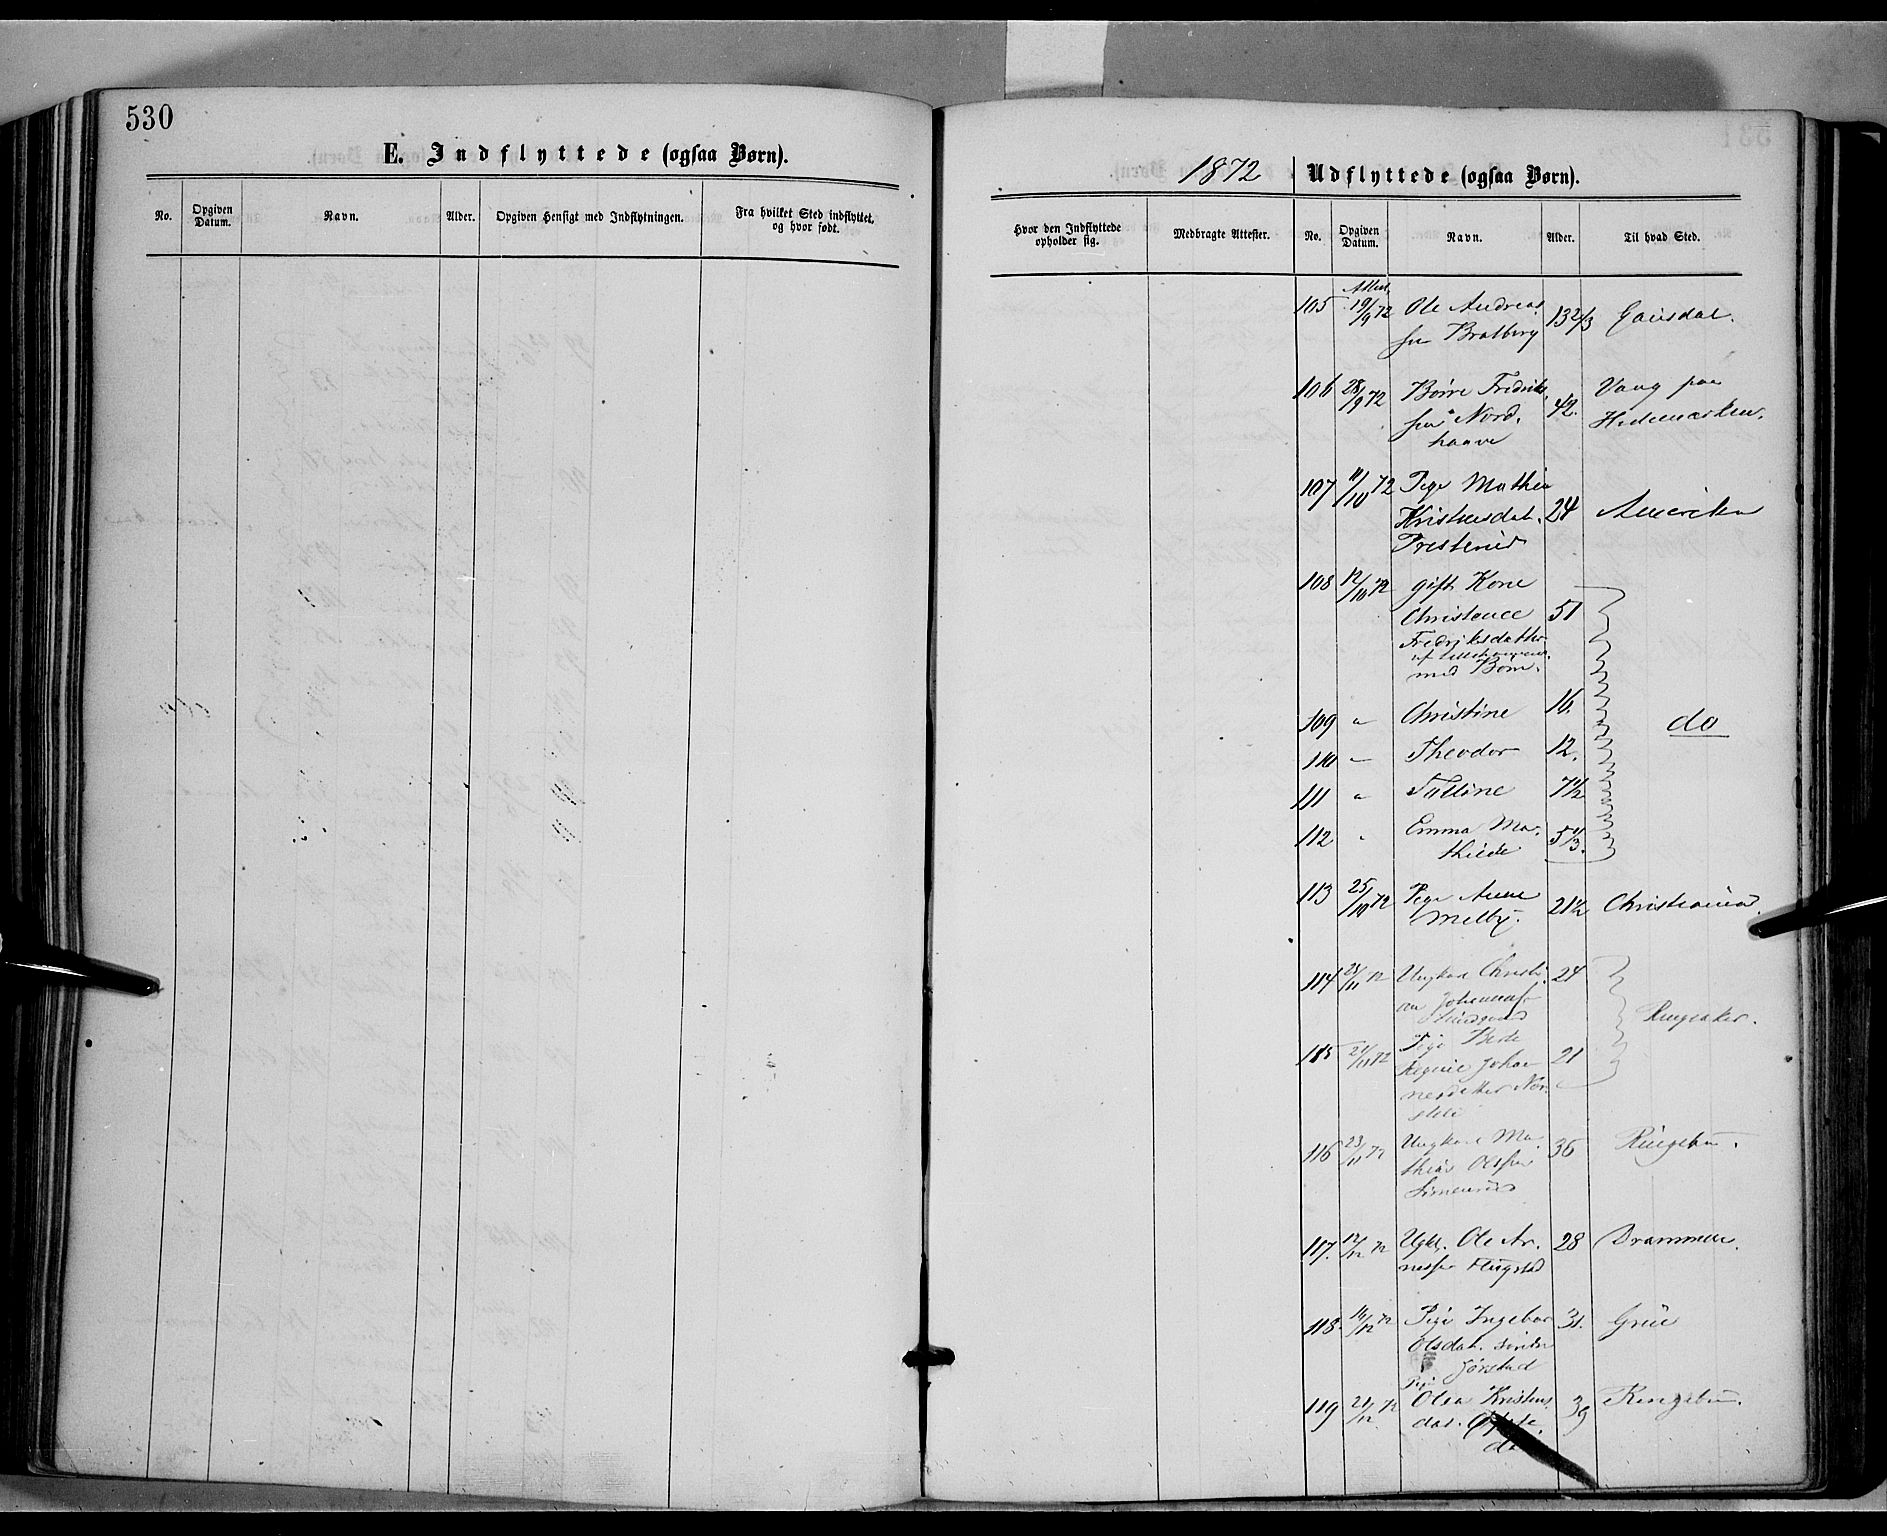 530
E. Indflyttede (ogsaa Børn).
No.
Opgiven Datum.
Navn.
Alder.
Opgiven Hensigt med Indflytningen.
Fra hvilket Sted indflyttet, og hvor født.
1872
Udflyttede (ogsaa Børn).
Hvor den Indflyttede opholder sig.
Medbragte Attester.
No.
Opgiven Datum.
Navn.
Alder.
Til hvad Sted.
105 19/9 72 Ole Andreas 13 2/3 Gausdal.
sen Bratberg
106 28/9 72 Børre Fredrik 42. Vang paa
sen Nord. Hedemarken.
haave
107 11/10 72 Pige Mathea
Kristensdat. 24 Amerika
Presterud
108 12/10 72 gift Kone
Christence 51
Fredriksdatter
med Børn.
109 " Christine 16. do
110 – Theodor 12.
111 " Talline 7 1/2
112 " Emma Ma- 5 1/3.
thilde
113 25/10 72 Pige Anne 21 1/2 Christiania.
Melby.
114 21/11 72 Ungkarl Christi- 24
an Johanness. Ringsaker.
115 21/11 72 Pige Berte 21
Regine Johan-
nesdatter Nor-
116 23/11 72 Ungkarl Ma- 36 Ringebu.
thias Olsen
Simensrud
117. 12/12 72 Ugkl. Ole Ar- 28 Drammen.
nesen Flugstad
118. 16/12 72 Pige Ingebor 31. Grue
Olsdat. søndre
Jørstad
Pige
119 21/12 72 Olea Kristens 39 Ringebu.
dat.